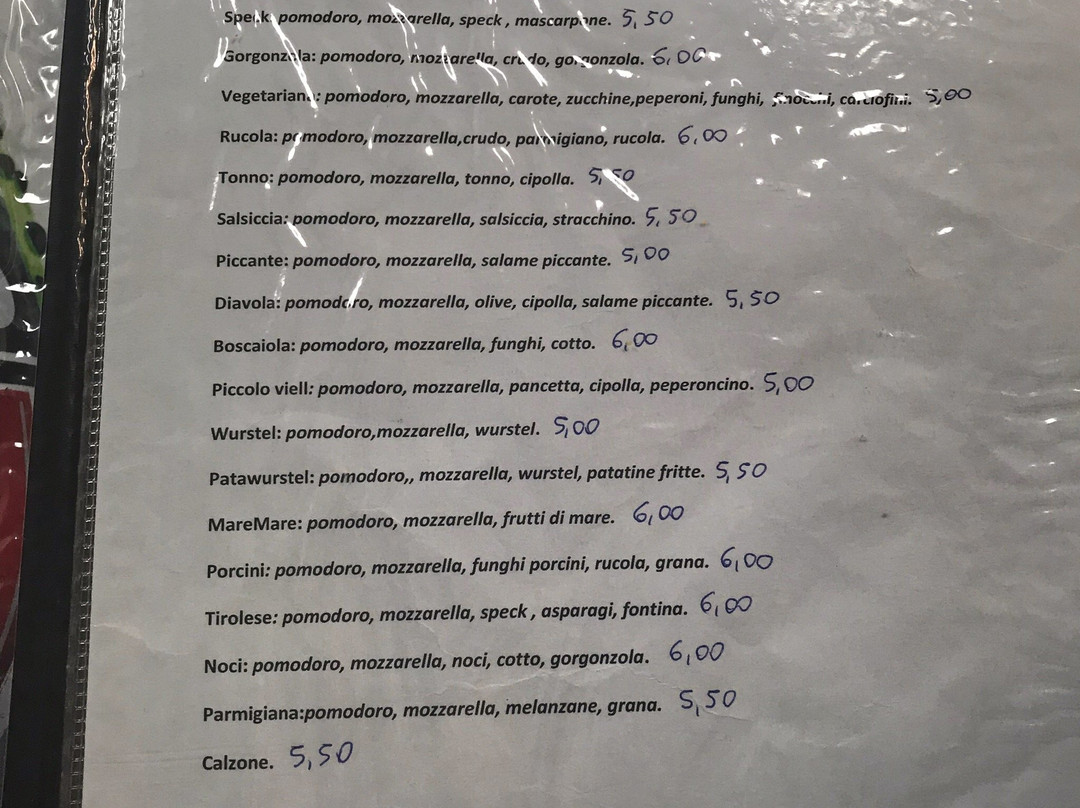 Speck: pomodoro, mozzarella, speck , mascarpone. 5,50
Gorgonzola: pomodoro, mozzarella, crudo, gorgonzola. 6,00
Vegetariana: pomodoro, mozzarella, carote, zucchine,peperoni, funghi, finocchi, carciofini. 5,00
Rucola: pomodoro, mozzarella,crudo, parmigiano, rucola. 6,00
Tonno: pomodoro, mozzarella, tonno, cipolla. 5,50
Salsiccia: pomodoro, mozzarella, salsiccia, stracchino. 5,50
Piccante: pomodoro, mozzarella, salame piccante. 5,00
Diavola: pomodoro, mozzarella, olive, cipolla, salame piccante. 5,50
Boscaiola: pomodoro, mozzarella, funghi, cotto. 6,00
Piccolo viell: pomodoro, mozzarella, pancetta, cipolla, peperoncino. 5,00
Wurstel: pomodoro,mozzarella, wurstel. 5,00
Patawurstel: pomodoro,, mozzarella, wurstel, patatine fritte. 5,50
MareMare: pomodoro, mozzarella, frutti di mare. 6,00
Porcini: pomodoro, mozzarella, funghi porcini, rucola, grana. 6,00
Tirolese: pomodoro, mozzarella, speck , asparagi, fontina. 6,00
Noci: pomodoro, mozzarella, noci, cotto, gorgonzola. 6,00
Parmigiana:pomodoro, mozzarella, melanzane, grana. 5,50
Calzone. 5,50